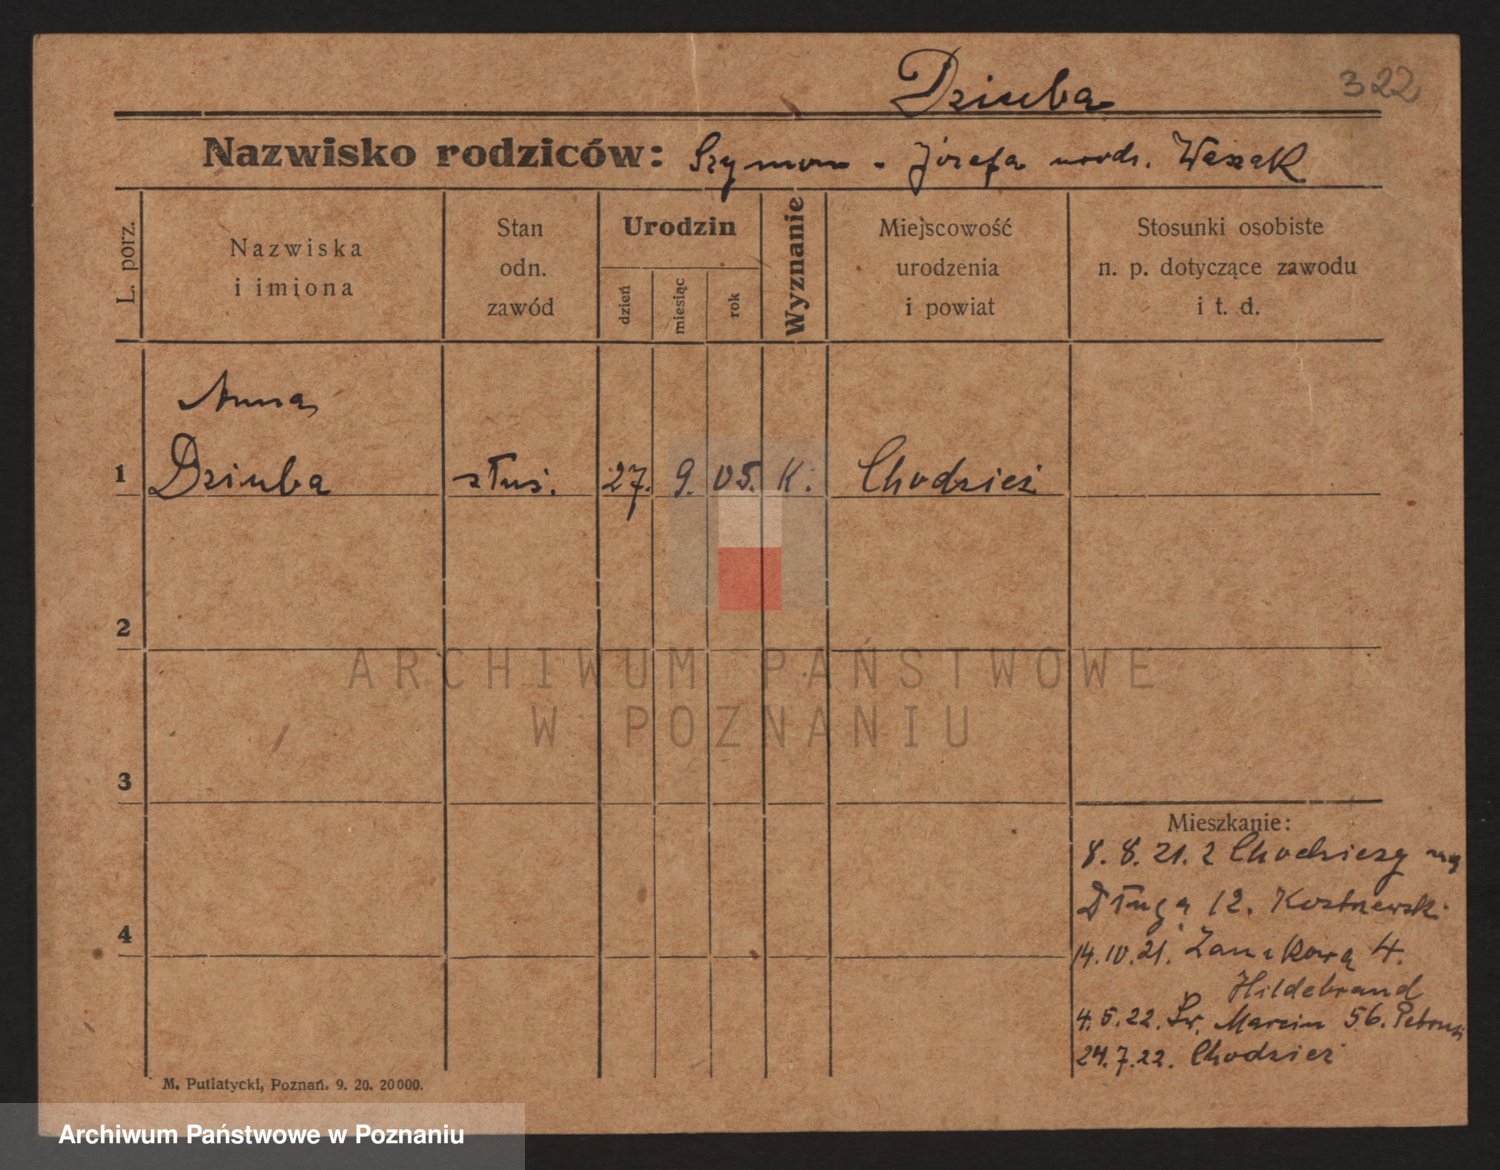 Dziuba
322
Nazwisko rodziców: Szymon - Józefa urodz. Waszak
L. porz.
Nazwiska
i imiona
Stan
odn.
zawód
Urodzin
dzień
miesiąc
rok
Wyznanie
Miejscowość
urodzenia
i powiat
Stosunki osobiste
n. p. dotyczące zawodu
i t. d.
Anna
1 Dziuba służ. 27. 9. 05. K. Chodzież
2
ARCHIWUM PAŃSTWOWE
W POZNANIU
3
Mieszkanie:
8. 8. 21. z Chodzieży na
Długą 12.
4
14.10.21. Zamkową 4.
Hildebrand
4.5.22. Św. Marcin 56.
24.7.22. Chodzież
M. Putiatycki, Poznań. 9. 20. 20000.
Archiwum Państwowe w Poznaniu